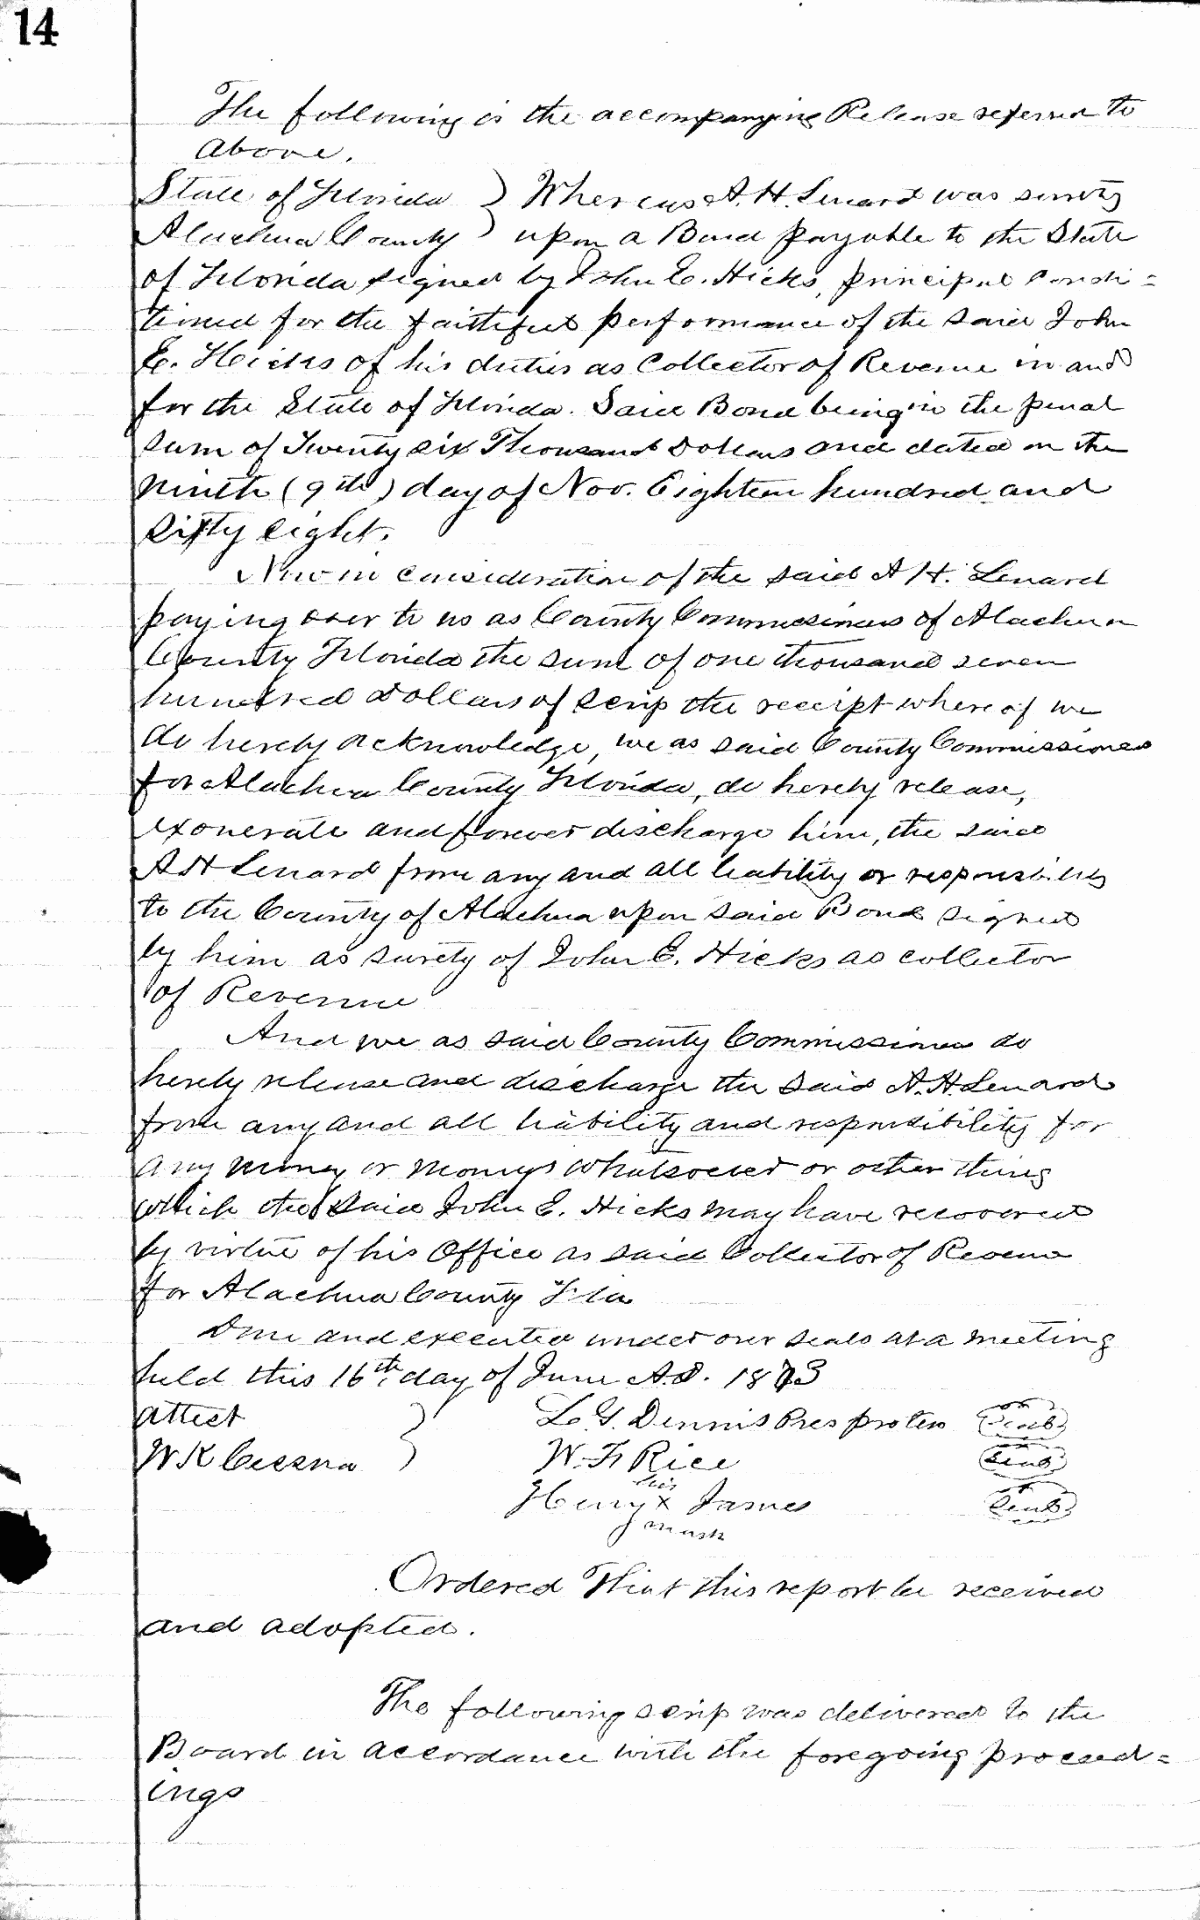 14
The following is the accompanying Release referred to
above.
State of Florida } Whereas A. H. Lenard was surety
Alachua County } upon a Bond payable to the State
of Florida signed by John E. Hicks, principal condi=
tioned for the faithful performance of the said John
E. Hicks of his duties as Collector of Revenue in and
for the State of Florida. Said Bond being in the penal
sum of Twenty six Thousand Dollars and dated on the
ninth (9th) day of Nov. Eighteen hundred and
sixty eight.
Now in consideration of the said A H. Lenard
paying over to us as County Commissioners of Alachua
County Florida the sum of one thousand seven
hundred Dollars of scrip the receipt where of we
do hereby acknowledge, we as said County Commissioners
for Alachua County Florida, do hereby release,
exonerate and forever discharge him, the said
A H Lenard from any and all liability or responsibility
to the County of Alachua upon said Bond signed
by him as surety of John E. Hicks as collector
of Revenue
And we as said County Commissioners do
hereby release and discharge the said A. H. Lenard
from any and all liability and responsibility for
any money or moneys whatsoever or other thing
which the said John E. Hicks may have recovered
by virtue of his Office as said Collector of Revenue
for Alachua County Fla
Done and executed under our seals at a meeting
held this 16th day of June A.D. 1873
Attest } L. G. Dennis Pres protem Seal
W K Cessna } W. F. Rice Seal
his
Henry x James Seal
mark
Ordered That this report be received
and adopted.
The following scrip was delivered to the
Board in accordance with the foregoing proceed=
ings